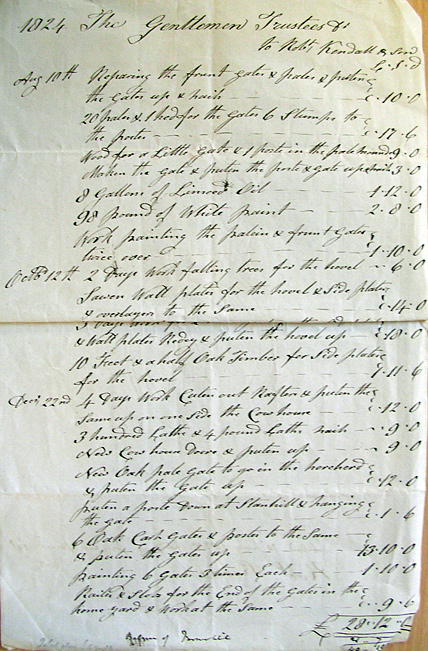 1824 The Gentlemen Trustees &c
to Robt Kendall & Son Dr
£ S d
Aug 10th Reparing the frount gates & pales & puten
the Gates up & nails £ 10 0
20 pales & 1 hed for the Gates 6 Stumps to
the posts £ 17 6
Wood for a Little Gate & 1 poste in the pale 9 0
Maken the gate & puten the poste & gate up & nails 3 0
8 Gallons of Linseed Oil 1 12 0
98 pound of White paint 2 8 0
Work painting the palein & frount Gates
twice over 1 10 0
Octbr 12th 2 Days Work falling trees for the hovel 6 0
Sawen Wall plates for the hovel & Side plates
& overlayen to the Same £ 14 0
3 Days
& Wall plates Redey & puten the hovel up £ 18 0
10 Feet & a half Oak Timber for Side plates
for the hovel 11 6
Decr 22nd 4 Days Work Cuten out Rafters & puten the
Same up on one Side the Cow house £ 12 0
3 hundred Laths & 4 pound Lath nails 9 0
New Cow house Doors & puten up 9 0
New Oak pale Gate to go in the
& puten the Gate up £ 12 0
puten a poste Down at & hanging
the gate £ 1 6
6 Oak Cash Gates & postes to the Same
& puten the Gates up 13 10 0
painting 6 Gates 3 times Each 1 10 0
Railes & for the End of the Gates in the
home yard & Work at the Same £ 9 6
£ 28 12